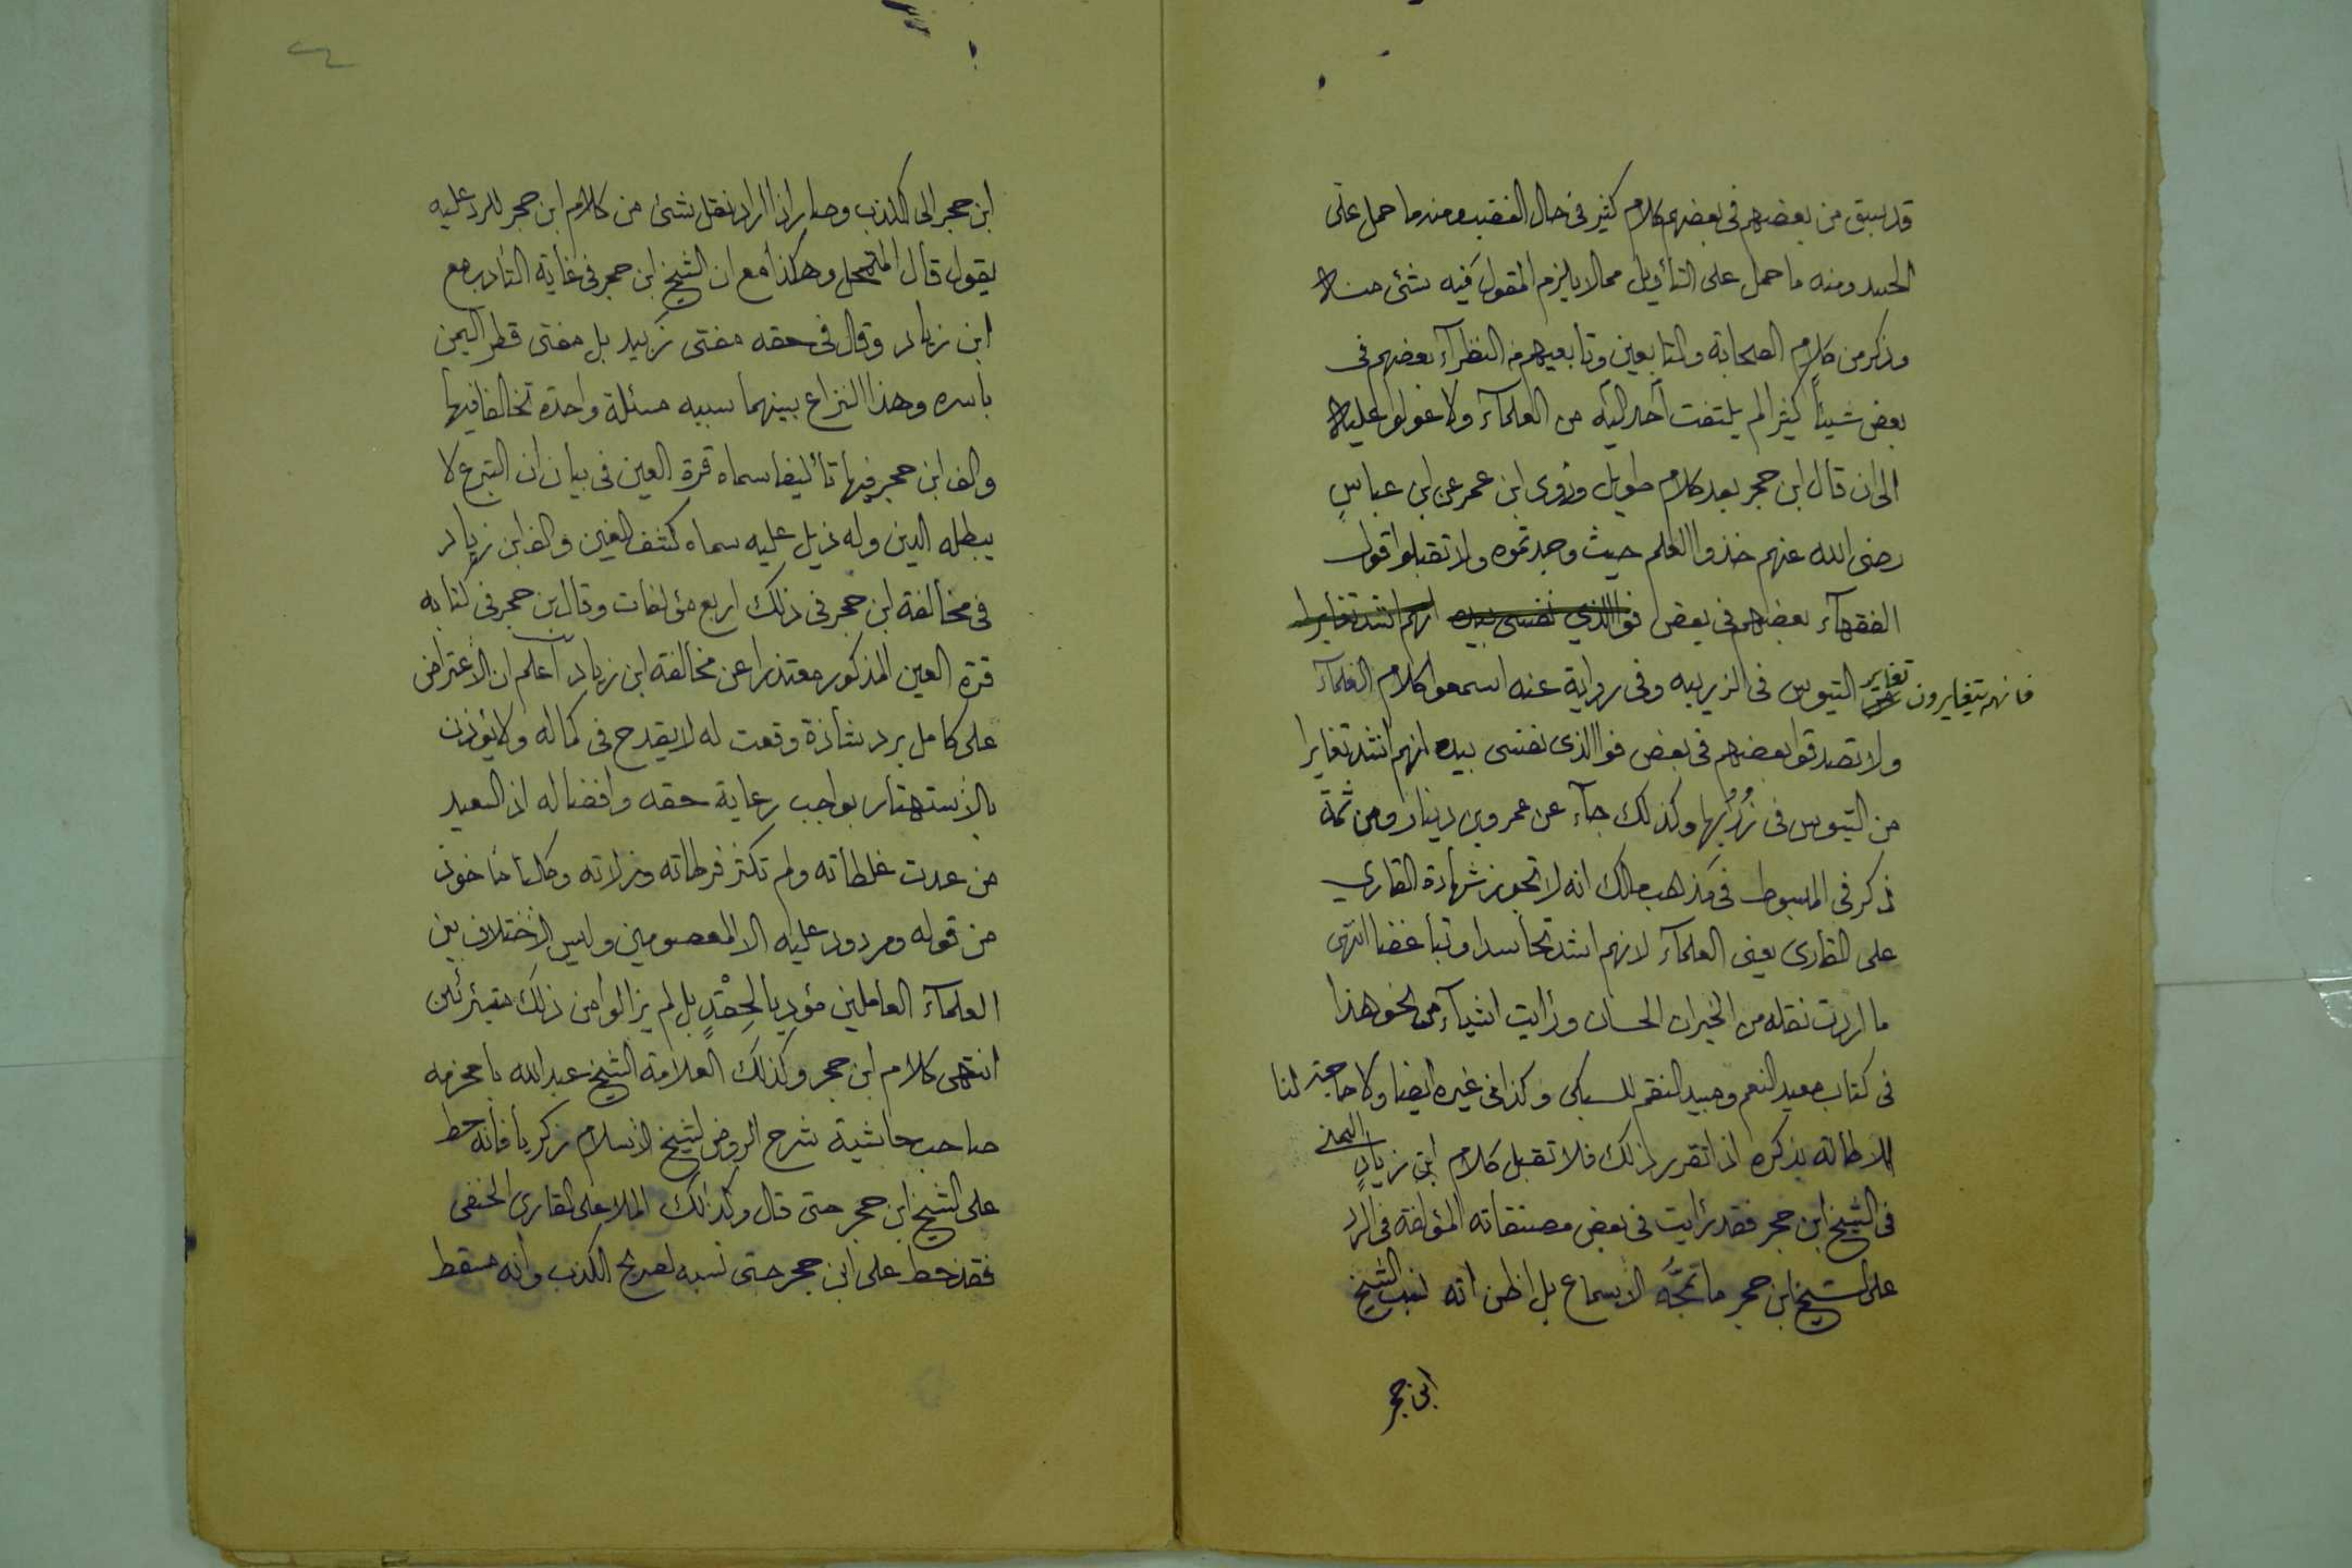 قد سبق من بعضهم في بعضهم كلام كثير في حال الغضب ومنه ما حمل على
الحسد ومنه ما حمل على التأويل مما لا يلزم المقول فيه شئ منه
وذكر من كلام الصحابة والتابعين وتابعيهم من النظرآء بعضهم في
بعض شيئاً كثيرا لم يلتفت أحد اليه من العلمآء ولا عولوا عليه
الى ان قال ابن حجر بعد كلام طويل وروى ابن عمر عن ابن عباس
رضى الله عنهم خذوا العلم حيث وجدتموه ولا تقبلوا قول
الفقهآء بعضهم في بعض فوالذي نفسى بيده انهم اشد تغايرا
فانهم يتغايرون تغاير التيوس في الزريبه وفي رواية عنه اسمعوا كلام العلمآء
ولا تصدقوا بعضهم في بعض فوالذى نفسى بيده انهم اشد تغايرا
من التيوس في زُرُبها وكذلك جآء عن عمرو بن دينار ومن ثمة
ذكر في المبسوط في مذهب مالك انه لا تجوز شهادة القاري
على القارى يعنى العلمآء لانهم اشد تحاسدا وتباغضا انتهى
ما اردت نقله من الخيرات الحسان ورأيت اشيآء من نحو هذا
في كتاب معيد النعم ومبيد النقم للسبكى وكذا في غيره ايضا ولا حاجة لنا
للاطالة بذكره اذا تقرر ذلك فلا تقبل كلام ابن زياد اليمني
في الشيخ ابن حجر فقد رأيت في بعض مصنفاته المؤلفة في الرد
على الشيخ ابن حجر ما تمجّه الاسماع بل اظن انه نسب الشيخ
ابن حجر
ابن حجر الى الكذب وصار اذا اراد نقل شئ من كلام ابن حجر للرد عليه
يقول قال المتمحل وهكذا مع ان الشيخ ابن حجر في غاية التأدب مع
ابن زياد وقال في حقه مفتى زبيد بل مفتى قطر اليمن
بأسره وهذا النزاع بينهما سببه مسئلة واحدة تخالفا فيها
والف ابن حجر فيها تأليفا سماه قرة العين في بيان ان التبرع لا
يبطله الدين وله ذيل عليه سماه كشف الغين والف ابن زياد
في مخالفة ابن حجر في ذلك اربع مؤلفات وقال ابن حجر في كتابه
قرة العين المذكور معتذرا عن مخالفة ابن زياد اعلم ان الاعتراض
على كامل برد شاذة وقعت له لا يقدح في كماله ولا يؤذن
بالاستهتار بواجب رعاية حقه وافضاله اذ السعيد
من عدت غلطاته ولم تكثر فرطاته وزلاته وكلنا مأخوذ
من قوله ومردود عليه الا المعصومين وليس الاختلاف بين
العلمآء العاملين مؤديا لحِقْدٍ بل لم يزالوا من ذلك متبرئين
انتهى كلام ابن حجر وكذلك العلامة الشيخ عبد الله بامخرمه
صاحب حاشية شرح الروض لشيخ الاسلام زكريا فأنه حط
على الشيخ ابن حجر حتى قال وكذلك الملا على القارى الحنفى
فقد حط على ابن حجر حتى نسبه لصريح الكذب وانه سقط